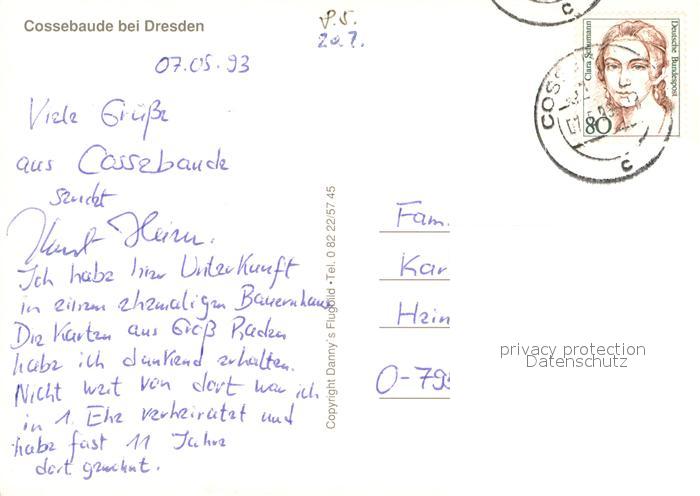 Cossebaude bei Dresden
P.S.
20.7.
07.05.93
Viele Grüße
aus Cossebaude
sendet
Horst Heinr.
Ich habe hier Unterkunft
in einem ehemaligen Bauernhaus
Die Karten aus Groß Raden
habe ich dankend erhalten.
Nicht weit von dort war ich
in 1. Ehe verheiratet und
habe fast 11 Jahre
dort gewohnt.
Copyright Danny's Flugbild • Tel. 0 82 22/57 45
Clara Schumann
Deutsche Bundespost
80
COSS
c
c
Fam.
Kar
Hein
O-795
privacy protection
Datenschutz